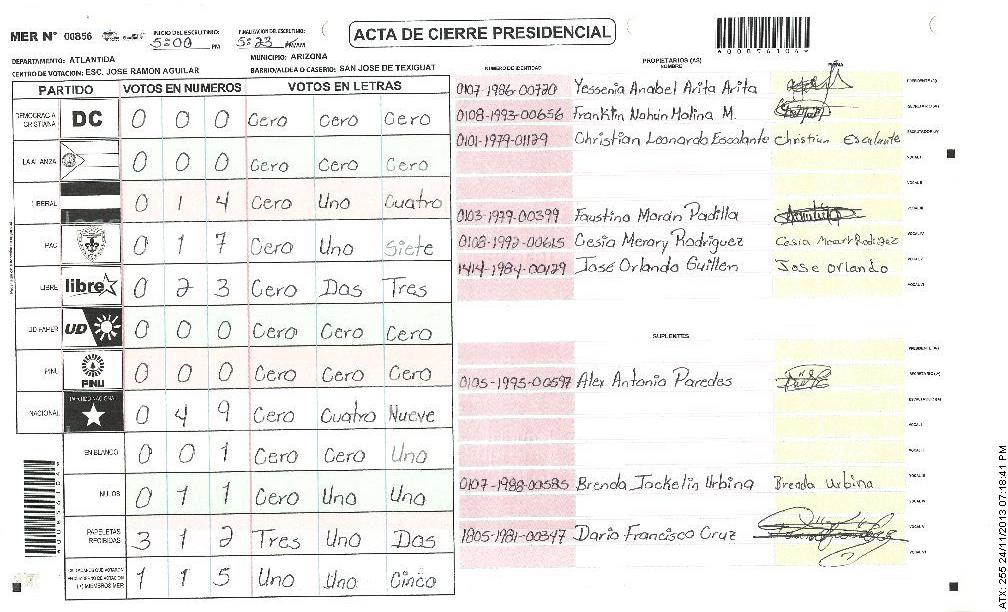 MER Nº 00856
INICIO DEL ESCRUTINIO: 5:00 PM
FINALIZACION DEL ESCRUTINIO: 5:23
ACTA DE CIERRE PRESIDENCIAL
DEPARTAMENTO: ATLANTIDA
MUNICIPIO: ARIZONA
CENTRO DE VOTACION: ESC. JOSE RAMON AGUILAR
BARRIO/ALDEA O CASERIO: SAN JOSE DE TEXIGUAT
PARTIDO VOTOS EN NUMEROS VOTOS EN LETRAS
DEMOCRACIA CRISTIANA DC 0 0 0 Cero Cero Cero
LA ALIANZA 0 0 0 Cero Cero Cero
LIBERAL 0 1 4 Cero Uno Cuatro
PAC 0 1 7 Cero Uno Siete
LIBRE libre 0 2 3 Cero Dos Tres
UD FAPER UD 0 0 0 Cero Cero Cero
PINU PINU 0 0 0 Cero Cero Cero
NACIONAL PARTIDO NACIONAL 0 4 9 Cero Cuatro Nueve
EN BLANCO 0 0 1 Cero Cero Uno
NULOS 0 1 1 Cero Uno Uno
PAPELETAS RECIBIDAS 3 1 2 Tres Uno Dos
CIUDADANOS QUE VOTARON
(+) MIEMBROS MER 1 1 5 Uno Uno Cinco
PROPIETARIOS (AS)
NUMERO DE IDENTIDAD NOMBRE FIRMA
0107-1986-00720 Yessenia Anabel Arita Arita PRESIDENTE (A)
0108-1993-00656 Franklin Nahun Molina M. SECRETARIO (A)
0101-1979-01129 Christian Leonardo Escalante Christian Escalante ESCRUTADOR (A)
VOCAL I
VOCAL II
0103-1979-00399 Faustino Morán Padilla VOCAL III
0108-1992-00615 Cesia Merary Rodriguez VOCAL IV
1414-1984-00129 José Orlando Guillen Jose orlando VOCAL V
VOCAL VI
SUPLENTES
PRESIDENTE (A)
0105-1995-00597 Alex Antonio Paredes SECRETARIO (A)
ESCRUTADOR (A)
VOCAL I
VOCAL II
0107-1988-00585 Brenda Jackelin Urbina Brenda Urbina VOCAL III
VOCAL IV
1805-1981-00347 Dario Francisco Cruz VOCAL V
VOCAL VI
ATX: 255 24/11/2013 07:18:41 PM